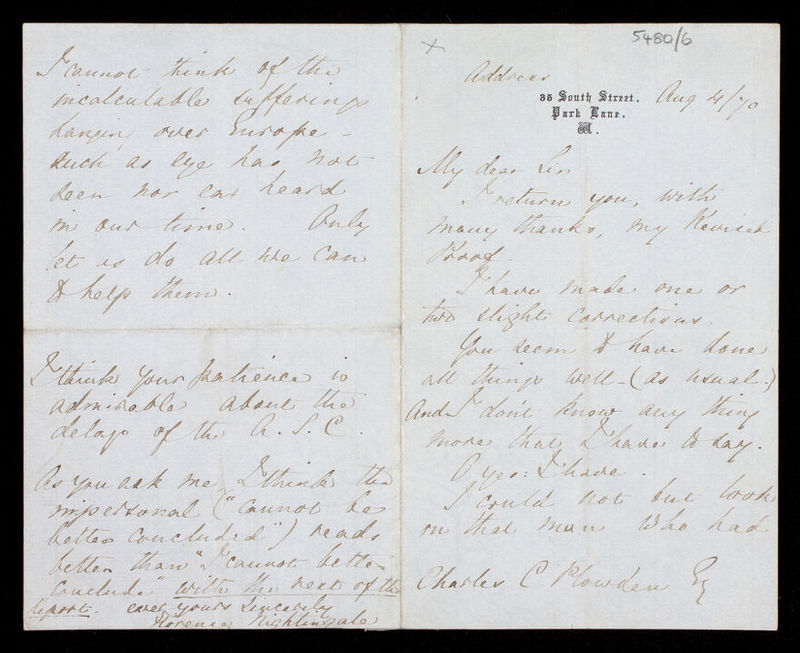 5480/6
x
Address
35 South Street,
Park Lane,
W.
Aug 4/70
My dear Sir
I return you, with
many thanks, my Revised
Proof.
I have made one or
two slight corrections.
You seem to have done
all things well - (as usual.)
And I don't know any thing
more that I have to say.
O yes: I have.
I could not but look
on that man who had
Charles C Plowden Esq
I cannot think of the
incalculable sufferings
hanging over Europe -
such as eye has not
seen nor ear heard
in our time. Only
let us do all we can
to help them.
I think your patience is
admirable about the
delays of the A. S. C.
As you ask me, I think the
impersonal ("cannot be
better concluded") reads
better than "I cannot better
conclude" with the rest of the
Report. ever yours sincerely
Florence Nightingale